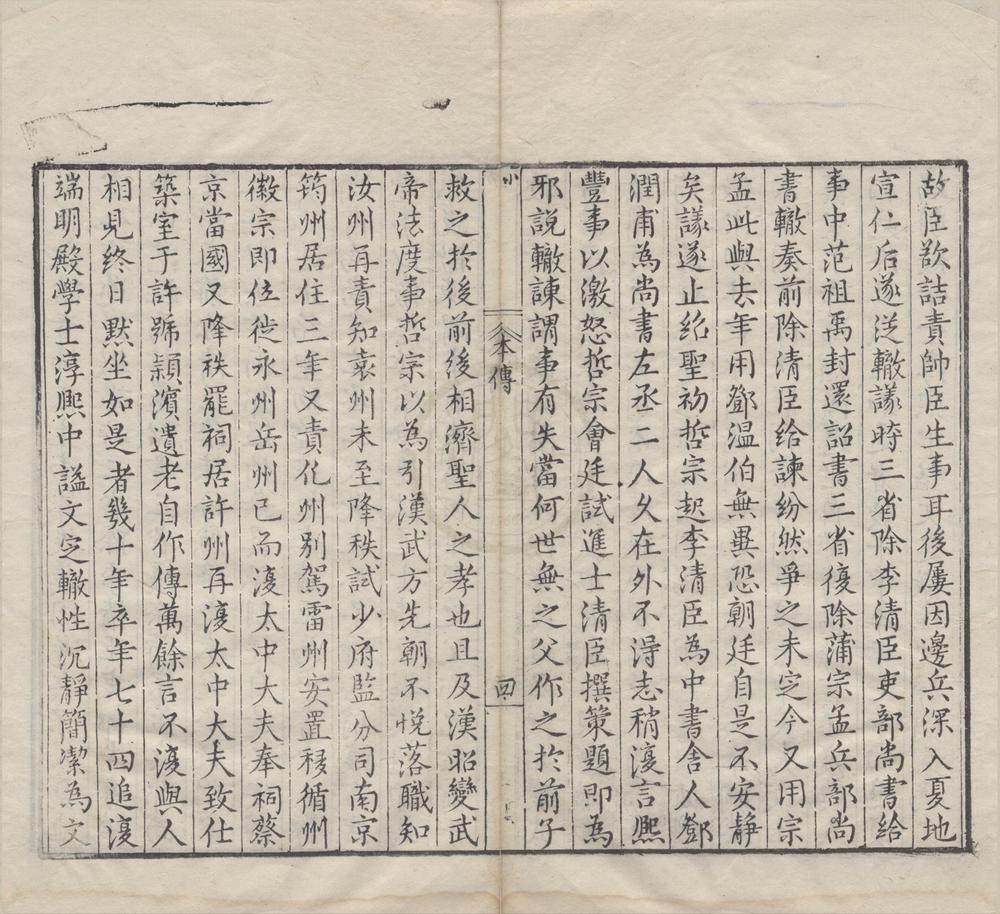 故臣欲詰責帥臣生事耳後屢因邊兵深入夏地
宣仁后遂從轍議時三省除李清臣吏部尚書給
事中范祖禹封還詔書三省復除蒲宗孟兵部尚
書轍奏前除清臣給諫紛然爭之未定今又用宗
孟此與去年用鄧温伯無異恐朝廷自是不安靜
矣議遂止紹聖初哲宗起李清臣為中書舍人鄧
潤甫為尚書左丞二人久在外不得志稍復言熈
豐事以激怒哲宗會廷試進士清臣撰策題即為
邪說轍諫謂事有失當何世無之父作之於前子
本傳
四
救之於後前後相濟聖人之孝也且及漢昭變武
帝法度事哲宗以為引漢武方先朝不悅落職知
汝州再責知袁州未至降秩試少府監分司南京
筠州居住三年又責化州別駕雷州安置移循州
徽宗即位徙永州岳州已而復太中大夫奉祠蔡
京當國又降秩罷祠居許州再復太中大夫致仕
築室于許號潁濵遺老自作傳萬餘言不復與人
相見終日默坐如是者幾十年卒年七十四追復
端明殿學士淳熈中謚文定轍性沉靜簡潔為文